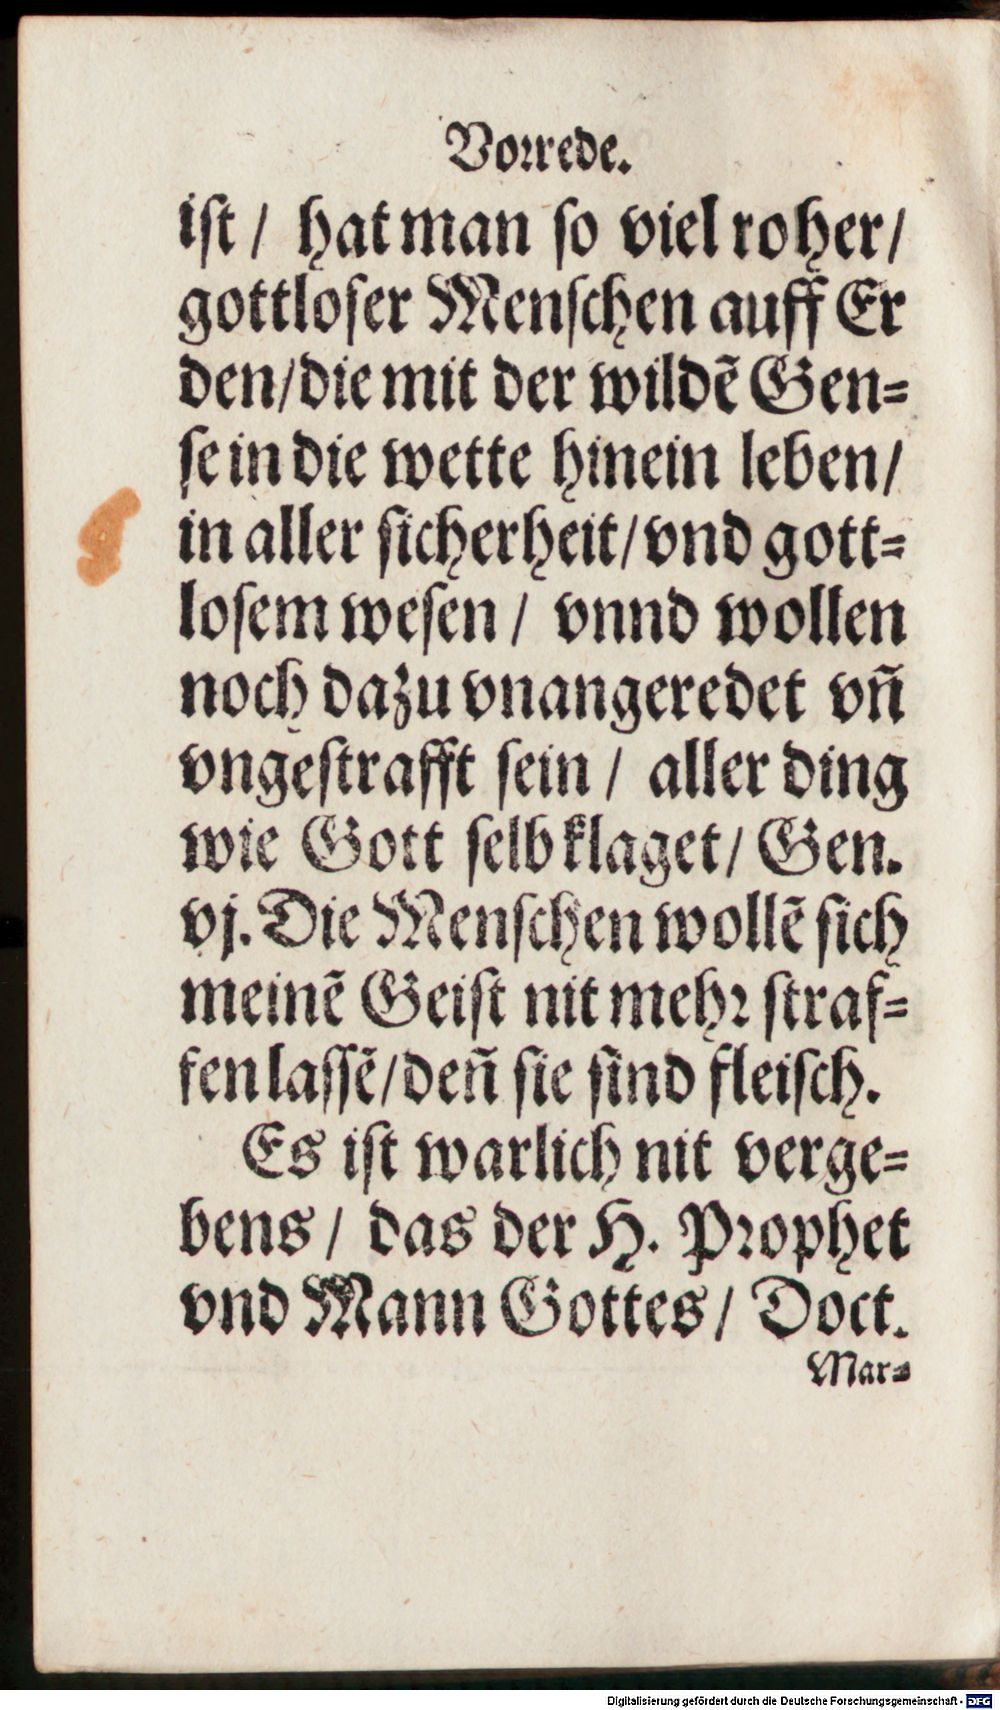 Vorrede.
ist / hat man so viel roher /
gottloser Menschen auff Er
den / die mit der wildẽ Gen=
se in die wette hinein leben /
in aller sicherheit / vnd gott=
losem wesen / vnnd wollen
noch dazu vnangeredet vñ
vngestrafft sein / aller ding
wie Gott selb klaget / Gen.
vj. Die Menschen wollẽ sich
meinẽ Geist nit mehr straf=
fen lassẽ / deñ sie sind fleisch.
Es ist warlich nit verge=
bens / das der H. Prophet
vnd Mann Gottes / Doct.
Mar=
Digitalisierung gefördert durch die Deutsche Forschungsgemeinschaft - DFG